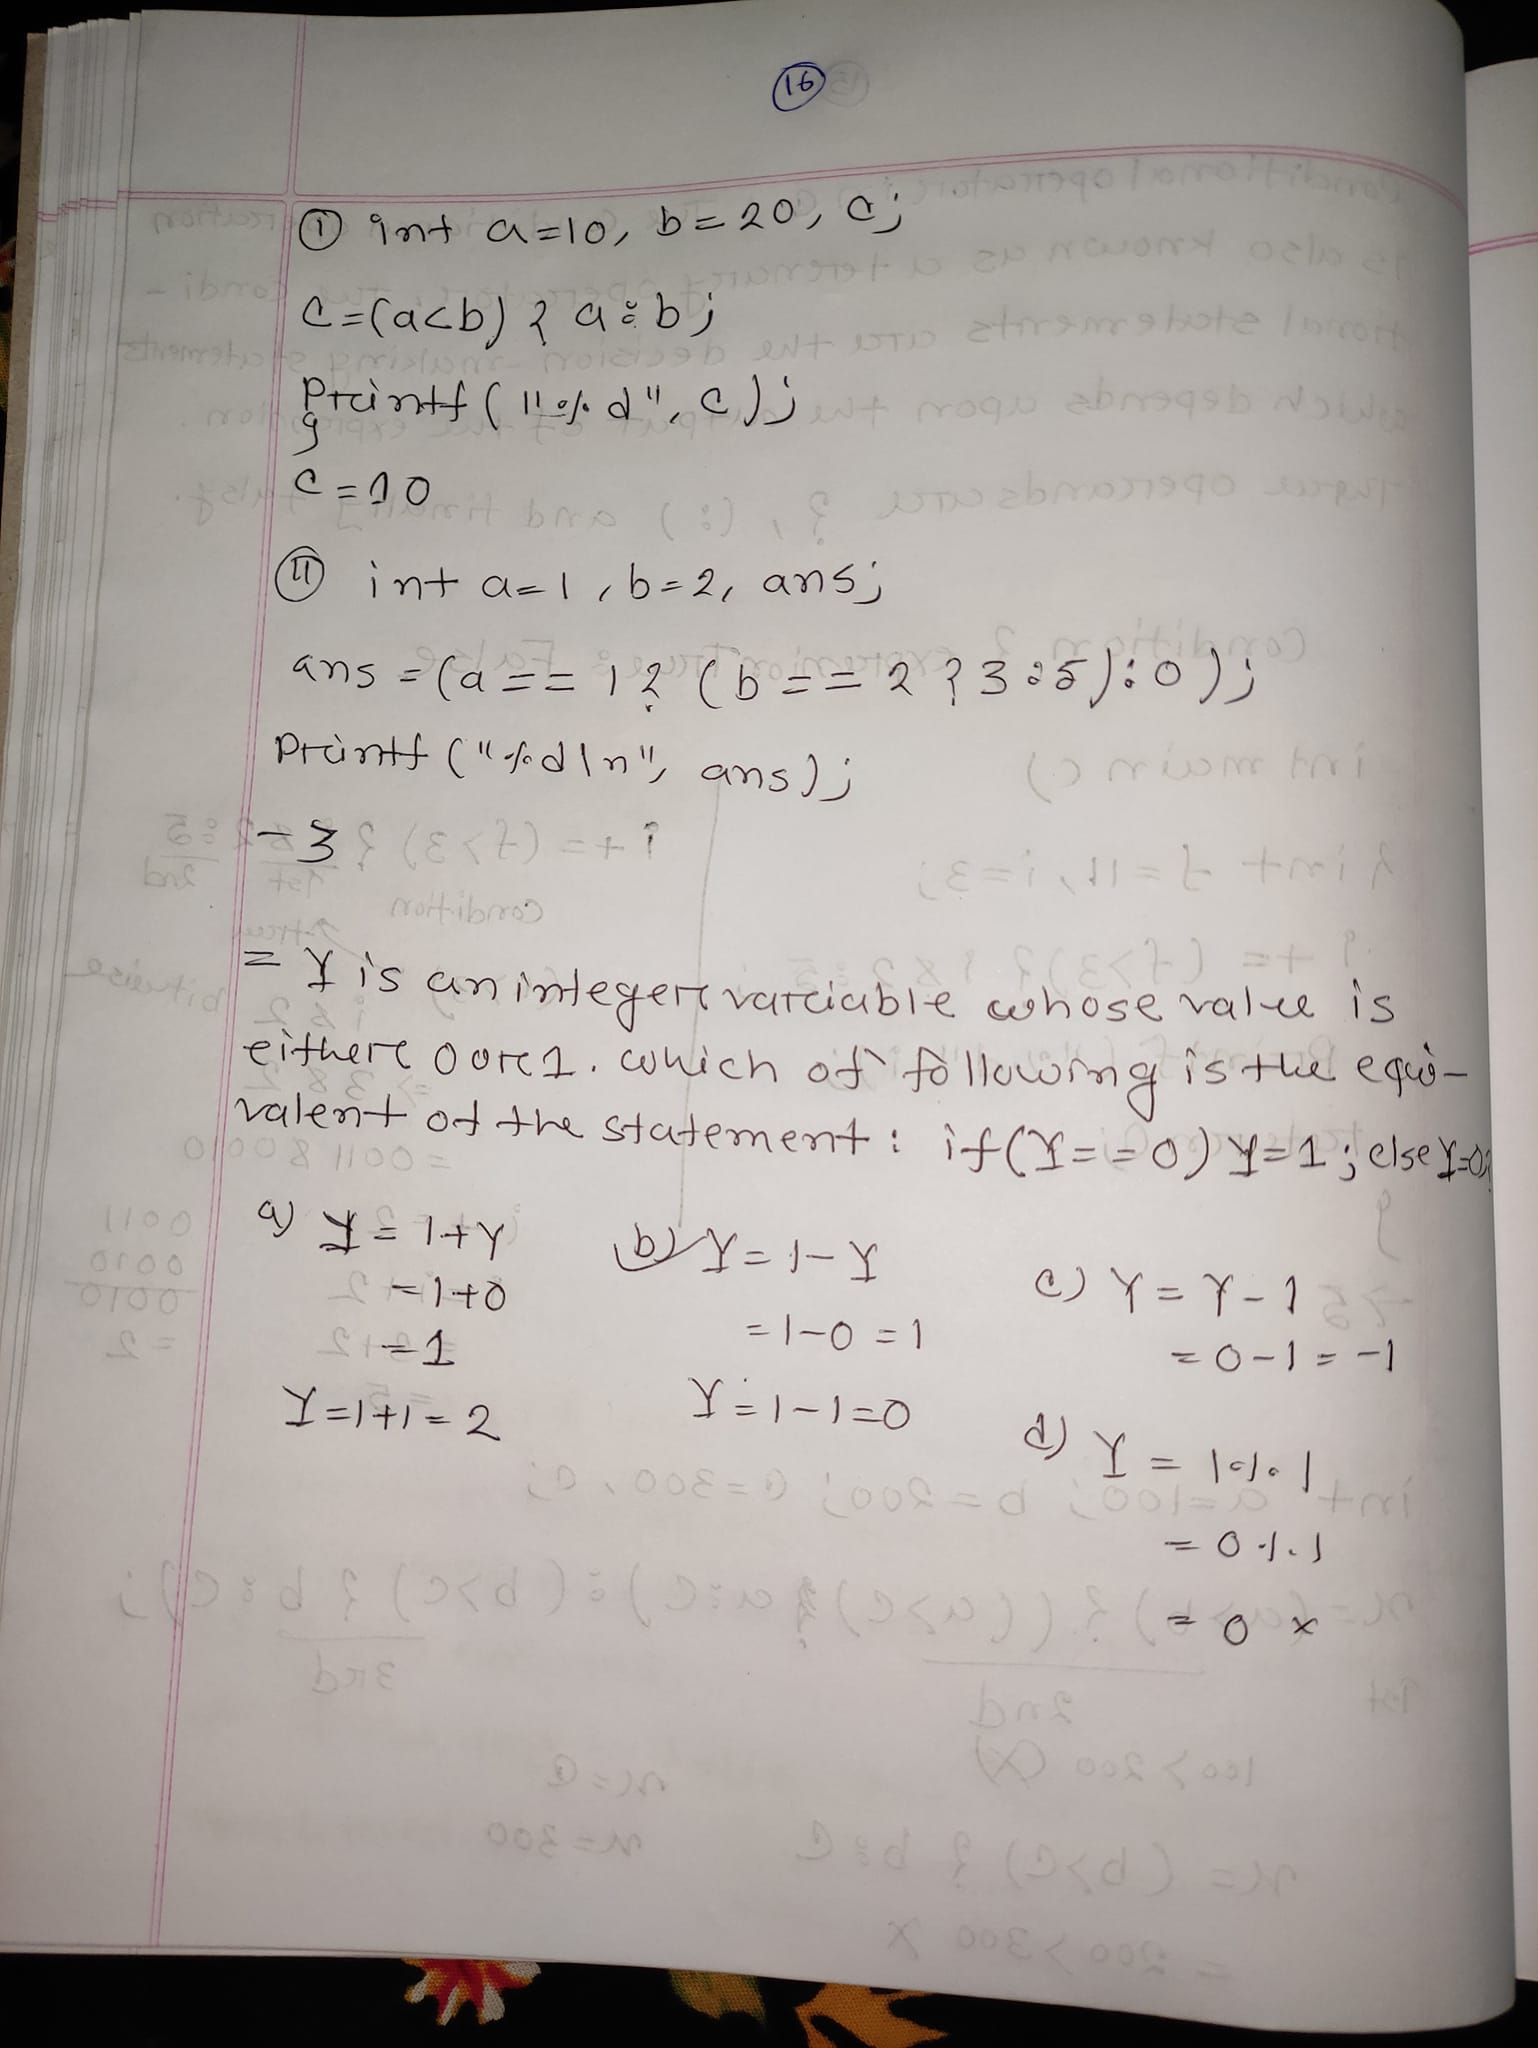 16
① int a=10, b=20, c;
c=(a<b) ? a : b;
Printf("%d", c);
}
c=10
② int a=1, b=2, ans;
ans =(a == 1? (b == 2 ? 3:5):0);
Printf("%d\n", ans);
-3
= Y is an integer variable whose value is
either 0 or 1. which of following is the equi-
valent of the statement: if(Y==0) Y=1; else Y=0;
a) Y=1+Y
=1+0
=1
Y=1+1=2
b) Y=1-Y
=1-0=1
Y=1-1=0
c) Y=Y-1
=0-1=-1
d) Y=1%1
=0%1
=0 ×